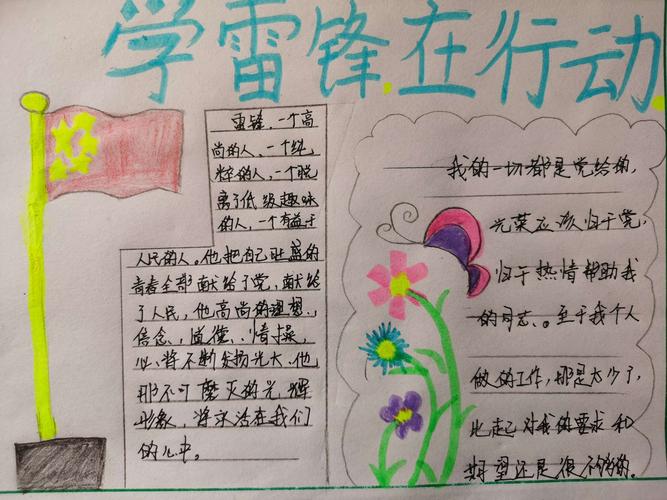 学雷锋在行动
雷锋，一个高
尚的人、一个纯
粹的人，一个脱
离了低级趣味
的人，一个有益于
人民的人。他把自己旺盛的
青春全部献给了党，献给
了人民，他高尚的理想、
信念、道德、情操，
必将不断发扬光大、他
那不可磨灭的光辉
形象，将永活在我们
的心中。
我的一切都是党给的，
光荣应该归于党，
归于热情帮助我
的同志、。至于我个人
做的工作，那是太少了，
比起党对我的要求和
期望还是很不够的。